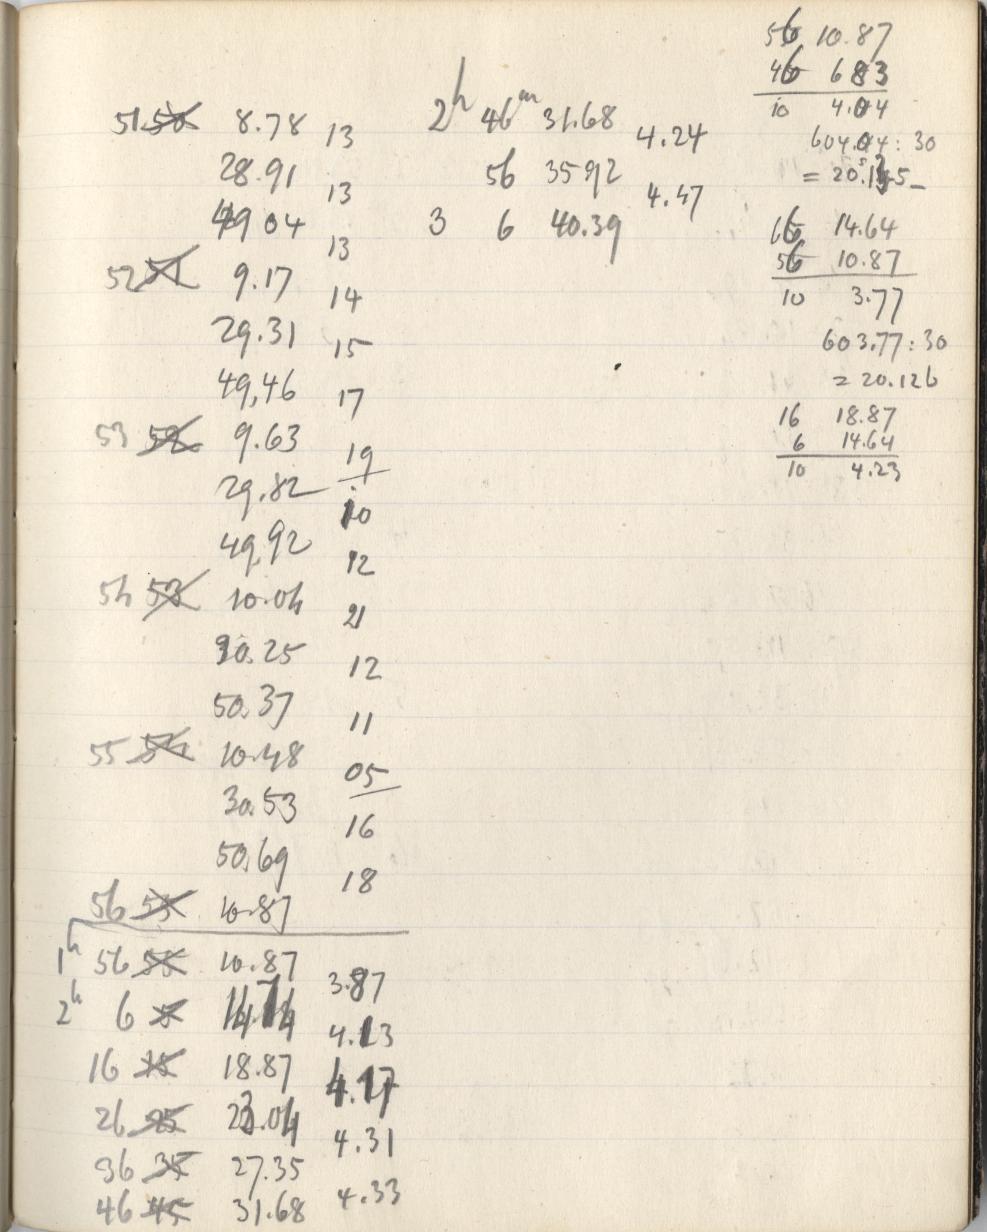 51 50 8.78
13
28.91
13
49 04
13
52 51 9.17
14
29.31
15
49,46
17
53 52 9.63
19
29.82
10
49,92
12
54 53 10.04
21
30.25
12
50.37
11
55 54 10.48
05
30.53
16
50.69
18
56 55 10.87
1h 56 55 10.87
3.87
2h 6 5
4.13
16 15 18.87
4.17
26 25 23.04
4.31
36 35 27.35
4.33
46 45 31.68
2h 46m 31.68
4.24
56 35 92
4.47
3 6 40.39
56 10.87
46 683
10 4.04
604.04 : 30
66 14.64
56 10.87
10 3.77
603.77 : 30
= 20.126
16 18.87
6 14.64
10 4.23